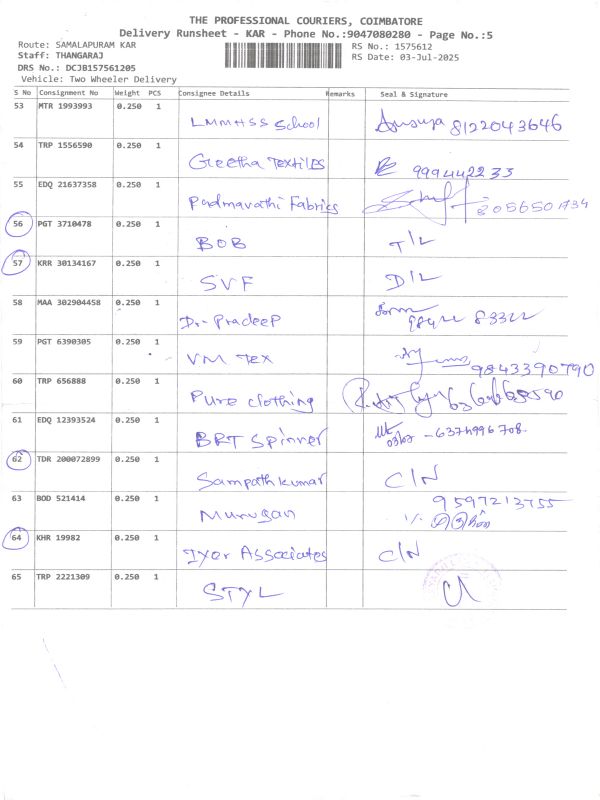 THE PROFESSIONAL COURIERS, COIMBATORE
Delivery Runsheet - KAR - Phone No.:9047080280 - Page No.:5
Route: SAMALAPURAM KAR RS No.: 1575612
Staff: THANGARAJ RS Date: 03-Jul-2025
DRS No.: DCJB157561205
Vehicle: Two Wheeler Delivery
S No Consignment No Weight PCS Consignee Details Remarks Seal & Signature
53 MTR 1993993 0.250 1
LMMHSS School Anusuya 8122043646
54 TRP 1556590 0.250 1
Geetha Textiles 999442233
55 EDQ 21637358 0.250 1
Padmavathi Fabrics 8056501734
56 PGT 3710478 0.250 1
BOB T/L
57 KRR 30134167 0.250 1
SVF D/L
58 MAA 302904458 0.250 1
Dr- Pradeep 98422 83322
59 PGT 6390305 0.250 1
VM Tex 9843390790
60 TRP 656888 0.250 1
Pure clothing
61 EDQ 12393524 0.250 1
BRT Spinner 03/07 - 6374996708
62 TDR 200072899 0.250 1
Sampathkumar C/N
63 BOD 521414 0.250 1 9597213755
Murugan
64 KHR 19982 0.250 1
Iyer Associates C/N
65 TRP 2221309 0.250 1
STYL